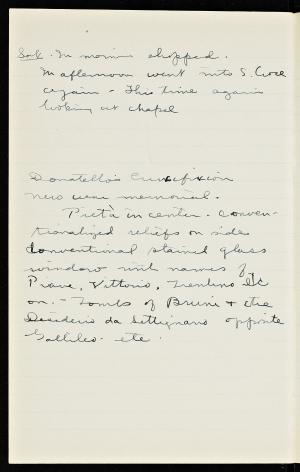 Sat. In morning shopped.
In afternoon went into S. Croce
again - This time again
looking at chapel
Donatello's Crucifixion
New war memorial.
Pietà in center. Conven-
tionalized reliefs on side
Conventional stained glass
window with names of
Piave, Vittorio, Trentino &c
on. - Tombs of Bruni + the
Desiderio da Settignano opposite
Gallileo. etc.